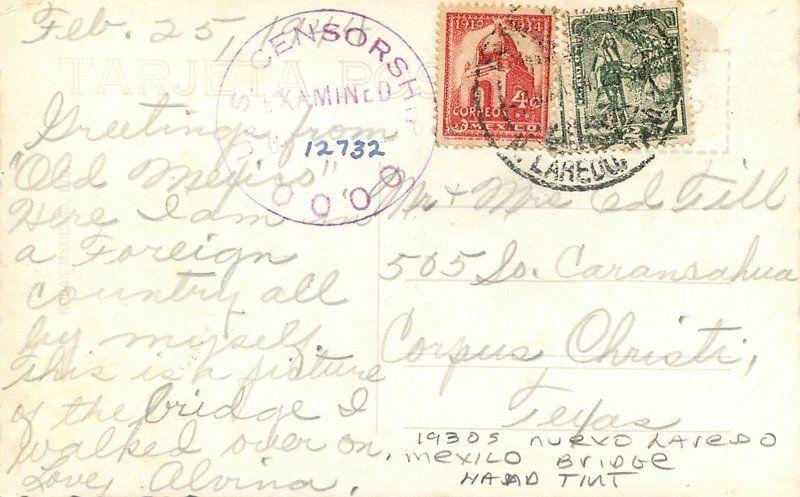 Feb. 25, 1944
TARJETA
U.S. CENSORSHIP
EXAMINED
12732
0000
1910 1934
4c
CORREOS
MEXICO
LAREDO,
Greetings from
"Old Mexico"
Here I am in
a Foreign
country all
by myself.
This is a picture
of the bridge I
walked over on.
Love, Alvina.
Mr + Mrs Ed Fill
505 So. Carancahua
Corpus Christi,
Texas
1930s NUEVO LAREDO
MEXICO BRIDGE
HAND TINT